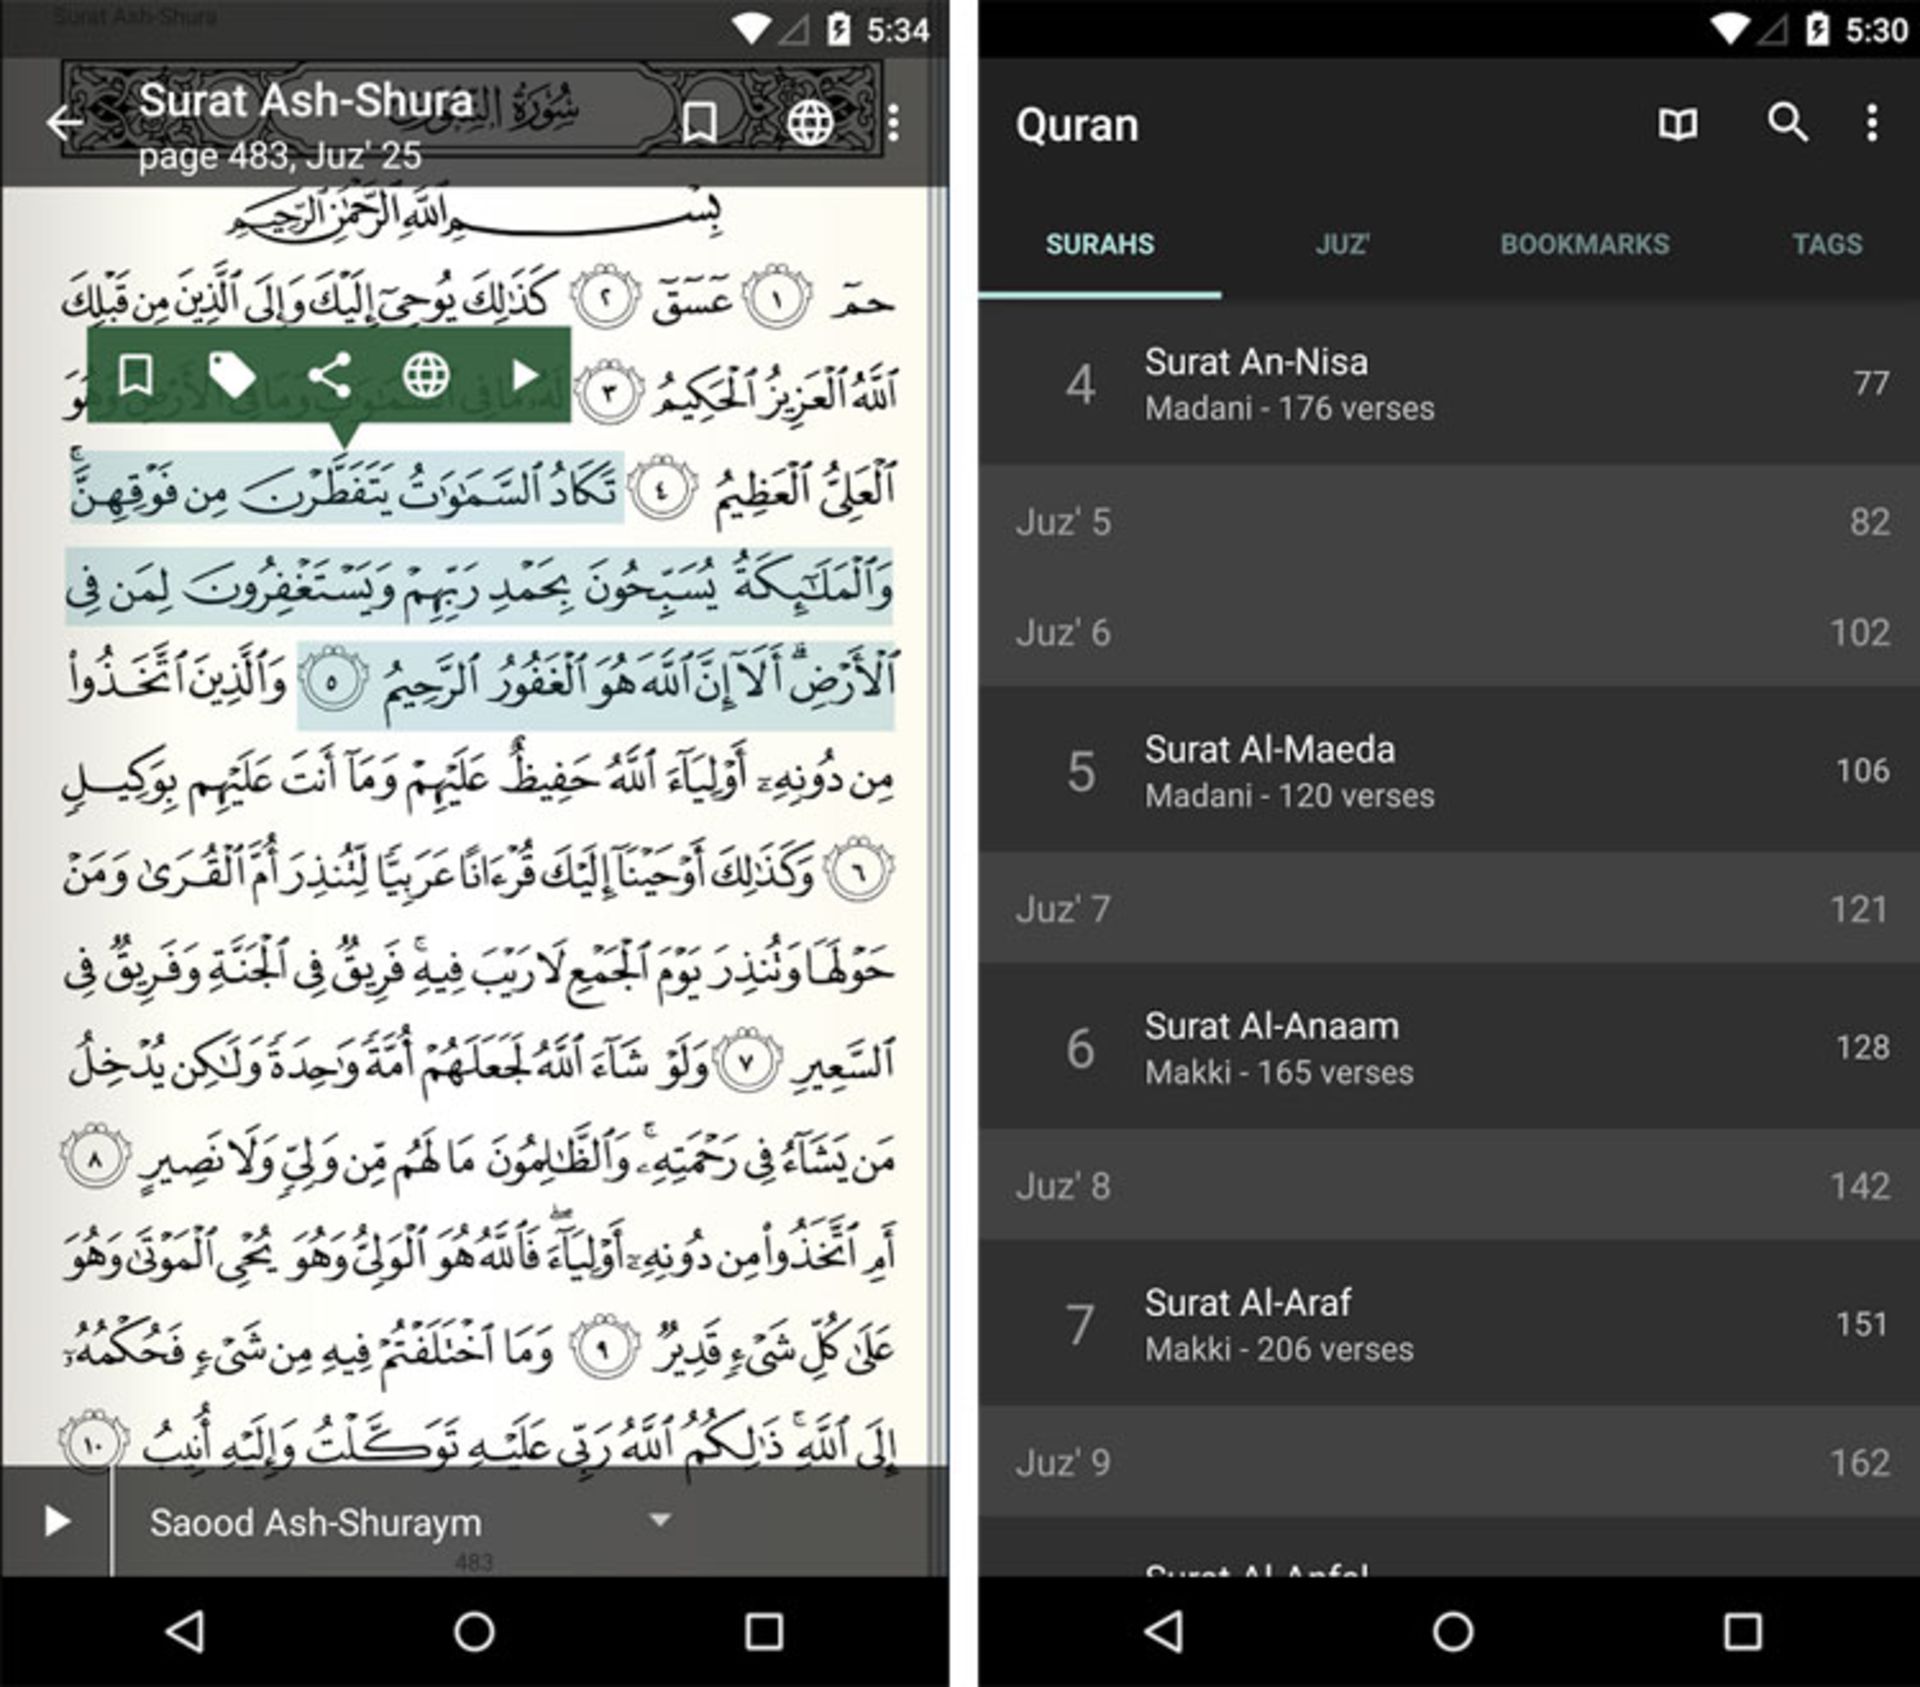 Surat Ash-Shura
5:34
Surat Ash-Shura
page 483, Juz' 25
بِسْمِ ٱللَّهِ ٱلرَّحْمَٰنِ ٱلرَّحِيمِ
حمٓ ١ عٓسٓقٓ ٢ كَذَٰلِكَ يُوحِىٓ إِلَيْكَ وَإِلَى ٱلَّذِينَ مِن قَبْلِكَ
ٱللَّهُ ٱلْعَزِيزُ ٱلْحَكِيمُ ٣ لَهُۥ مَا فِى ٱلسَّمَٰوَٰتِ وَمَا فِى ٱلْأَرْضِ وَهُوَ
ٱلْعَلِىُّ ٱلْعَظِيمُ ٤ تَكَادُ ٱلسَّمَٰوَٰتُ يَتَفَطَّرْنَ مِن فَوْقِهِنَّ ۚ
وَٱلْمَلَٰٓئِكَةُ يُسَبِّحُونَ بِحَمْدِ رَبِّهِمْ وَيَسْتَغْفِرُونَ لِمَن فِى
ٱلْأَرْضِ ۗ أَلَآ إِنَّ ٱللَّهَ هُوَ ٱلْغَفُورُ ٱلرَّحِيمُ ٥ وَٱلَّذِينَ ٱتَّخَذُوا۟
مِن دُونِهِۦٓ أَوْلِيَآءَ ٱللَّهُ حَفِيظٌ عَلَيْهِمْ وَمَآ أَنتَ عَلَيْهِم بِوَكِيلٍ
٦ وَكَذَٰلِكَ أَوْحَيْنَآ إِلَيْكَ قُرْءَانًا عَرَبِيًّا لِّتُنذِرَ أُمَّ ٱلْقُرَىٰ وَمَنْ
حَوْلَهَا وَتُنذِرَ يَوْمَ ٱلْجَمْعِ لَا رَيْبَ فِيهِ ۚ فَرِيقٌ فِى ٱلْجَنَّةِ وَفَرِيقٌ فِى
ٱلسَّعِيرِ ٧ وَلَوْ شَآءَ ٱللَّهُ لَجَعَلَهُمْ أُمَّةً وَٰحِدَةً وَلَٰكِن يُدْخِلُ
مَن يَشَآءُ فِى رَحْمَتِهِۦ ۚ وَٱلظَّٰلِمُونَ مَا لَهُم مِّن وَلِىٍّ وَلَا نَصِيرٍ ٨
أَمِ ٱتَّخَذُوا۟ مِن دُونِهِۦٓ أَوْلِيَآءَ ۖ فَٱللَّهُ هُوَ ٱلْوَلِىُّ وَهُوَ يُحْىِ ٱلْمَوْتَىٰ وَهُوَ
عَلَىٰ كُلِّ شَىْءٍ قَدِيرٌ ٩ وَمَا ٱخْتَلَفْتُمْ فِيهِ مِن شَىْءٍ فَحُكْمُهُۥٓ
إِلَى ٱللَّهِ ۚ ذَٰلِكُمُ ٱللَّهُ رَبِّى عَلَيْهِ تَوَكَّلْتُ وَإِلَيْهِ أُنِيبُ ١٠
Saood Ash-Shuraym
483
5:30
Quran
SURAHS JUZ' BOOKMARKS TAGS
4 Surat An-Nisa 77
Madani - 176 verses
Juz' 5 82
Juz' 6 102
5 Surat Al-Maeda 106
Madani - 120 verses
Juz' 7 121
6 Surat Al-Anaam 128
Makki - 165 verses
Juz' 8 142
7 Surat Al-Araf 151
Makki - 206 verses
Juz' 9 162
Surat Al-Anfal